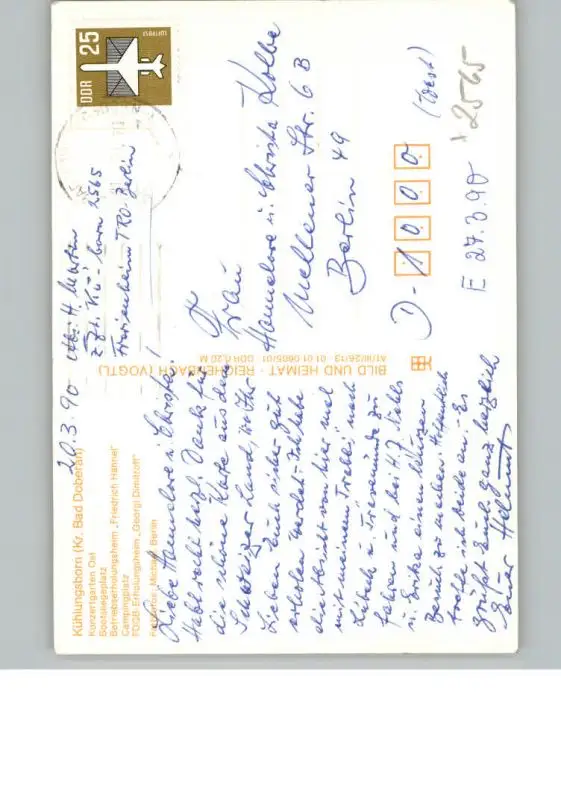 Kühlungsborn (Kr. Bad Doberan)
Konzertgarten Ost
Bootsliegeplatz
Betriebserholungsheim „Friedrich Hannel"
Campingplatz
FDGB-Erholungsheim „Georgi Dimitroff"
Berlin
20.3.90
Liebe Hannelore u. Christa!
Habt recht herzl. Dank für
die schöne Karte aus dem
Schweizer Land, wo Ihr
Lieben Euch sicher gut
erholen werdet. Ich habe
die Absicht von hier mal
mit meinem „Trabi" nach
Lübeck u. Travemünde zu
fahren und bei H.J.
u. Erika einen
Besuch zu machen.
ich beide an. Es
grüßt Euch ganz herzlich
Euer Helmut
BILD UND HEIMAT · REICHENBACH (VOGTL)
A1/III/26/13 01 01 0605/01 DDR 0,20 M
Abs. H. Martin
z. Zt. Kü-born 2565
Ferienheim TRO-Berlin
DDR 25
LUFTPOST
Frau
Hannelore u. Christa Kolbe
Mellener Str. 6 B
Berlin 49
D-1000
(West)
2565
E 27.3.90